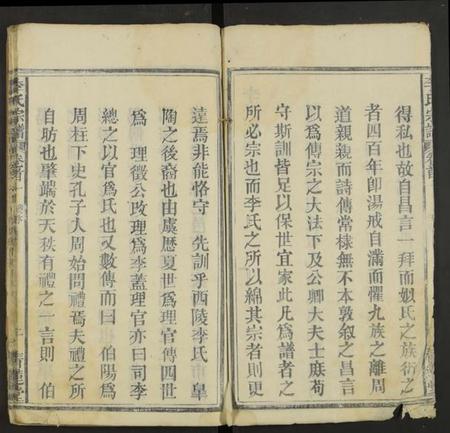 得私也故自昌言一拜而姒氏之族衍之
者四百年卽湯戒自滿而懼九族之離周
道親親而詩傳常棣無不本敦敘之昌言
以爲傳宗之大法下及公卿大夫士庶苟
守斯訓皆足以保世宜家此凡爲譜者之
所必宗也而李氏之所以綿其宗者則更
遠焉非能恪守 先訓乎西陵李氏 皐
陶之後裔也由虞歷夏世爲理官傳四世
爲 理徵公改理爲李蓋理官亦曰司李
總之以官爲氏也又數傳而曰 伯陽爲
周柱下史孔子入周始問禮焉夫禮之所
自昉也肇端於天秩有禮之一言則 伯
李氏宗譜 卷首